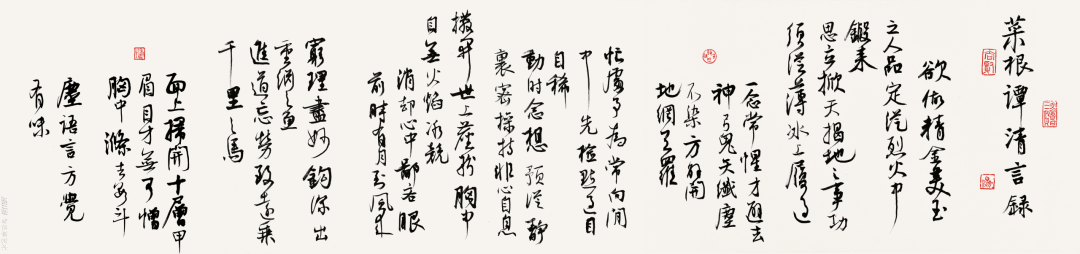 菜根谭清言録
欲做精金美玉
之人品定從烈火中
鍛来
思立掀天揭地之事功
須從薄冰上履過
一念常惺才避去
神弓鬼矢纖塵
不染方解開
地網天羅
忙處事為常向閒
中先檢點過自
自稀
動時念想預從靜
裏密操持非心自息
撥開世上塵氛胸中
自無火焰冰兢
消却心中鄙吝眼
前時有月到風来
窮理盡妙鈎深出
重淵之魚
進道忘勞致遠乗
千里之馬
面上掃開十層甲
眉目才無可憎
胸中滌去數斗
塵語言方覺
有味